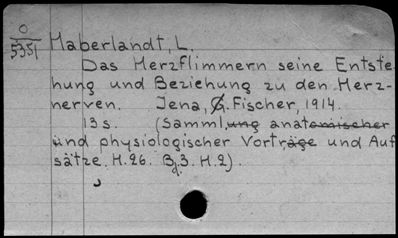 O
5351
Haberlandt, L.
Das Herzflimmern seine Entste-
hung und Beziehung zu den Herz-
nerven. Jena, G. Fischer, 1914.
13 s. (Samml. ung anatomischer
und physiologischer Vorträge und Auf
sätze. H. 26. Bg. 3. H. 2).